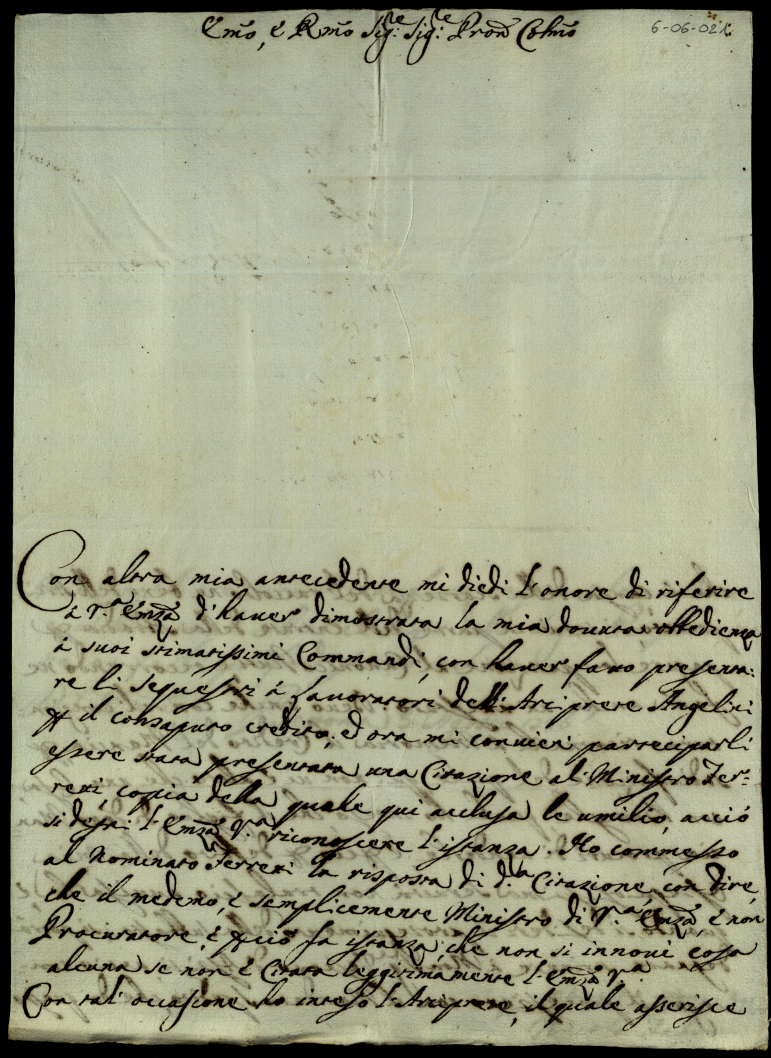 Emo, è Rmo Sig.re Sig.re Pron Colmo
6-06-021
Con altra mia antecedente mi diedi l'onore di riferire
à V.a Emza d'hauer dimostrata la mia douuta obbedienza
à suoi stimatissimi Commandi, con hauer fatto presenta:
re li sequestri à Lauoratori dell'Arciprete Angelini
p il consaputo credito; ed ora mi convien parteciparli
essere stata presentata una Citazione al Ministro Fer-
reri, copia della quale qui acclusa le umilio, acciò
si degni l'Emza V.a riconoscere l'istanza. Ho commesso
al Nominato Ferreri la risposta di d.a Citazione con dire,
che il medemo, è semplicemente Ministro di V.a Emza, è non
Procuratore, è pciò fa istanza, che non si innoui cosa
alcuna se non è Citata leggitimamente l'Emza V.a
Con tal' occasione ho inteso l'Arciprete, il quale asserisce